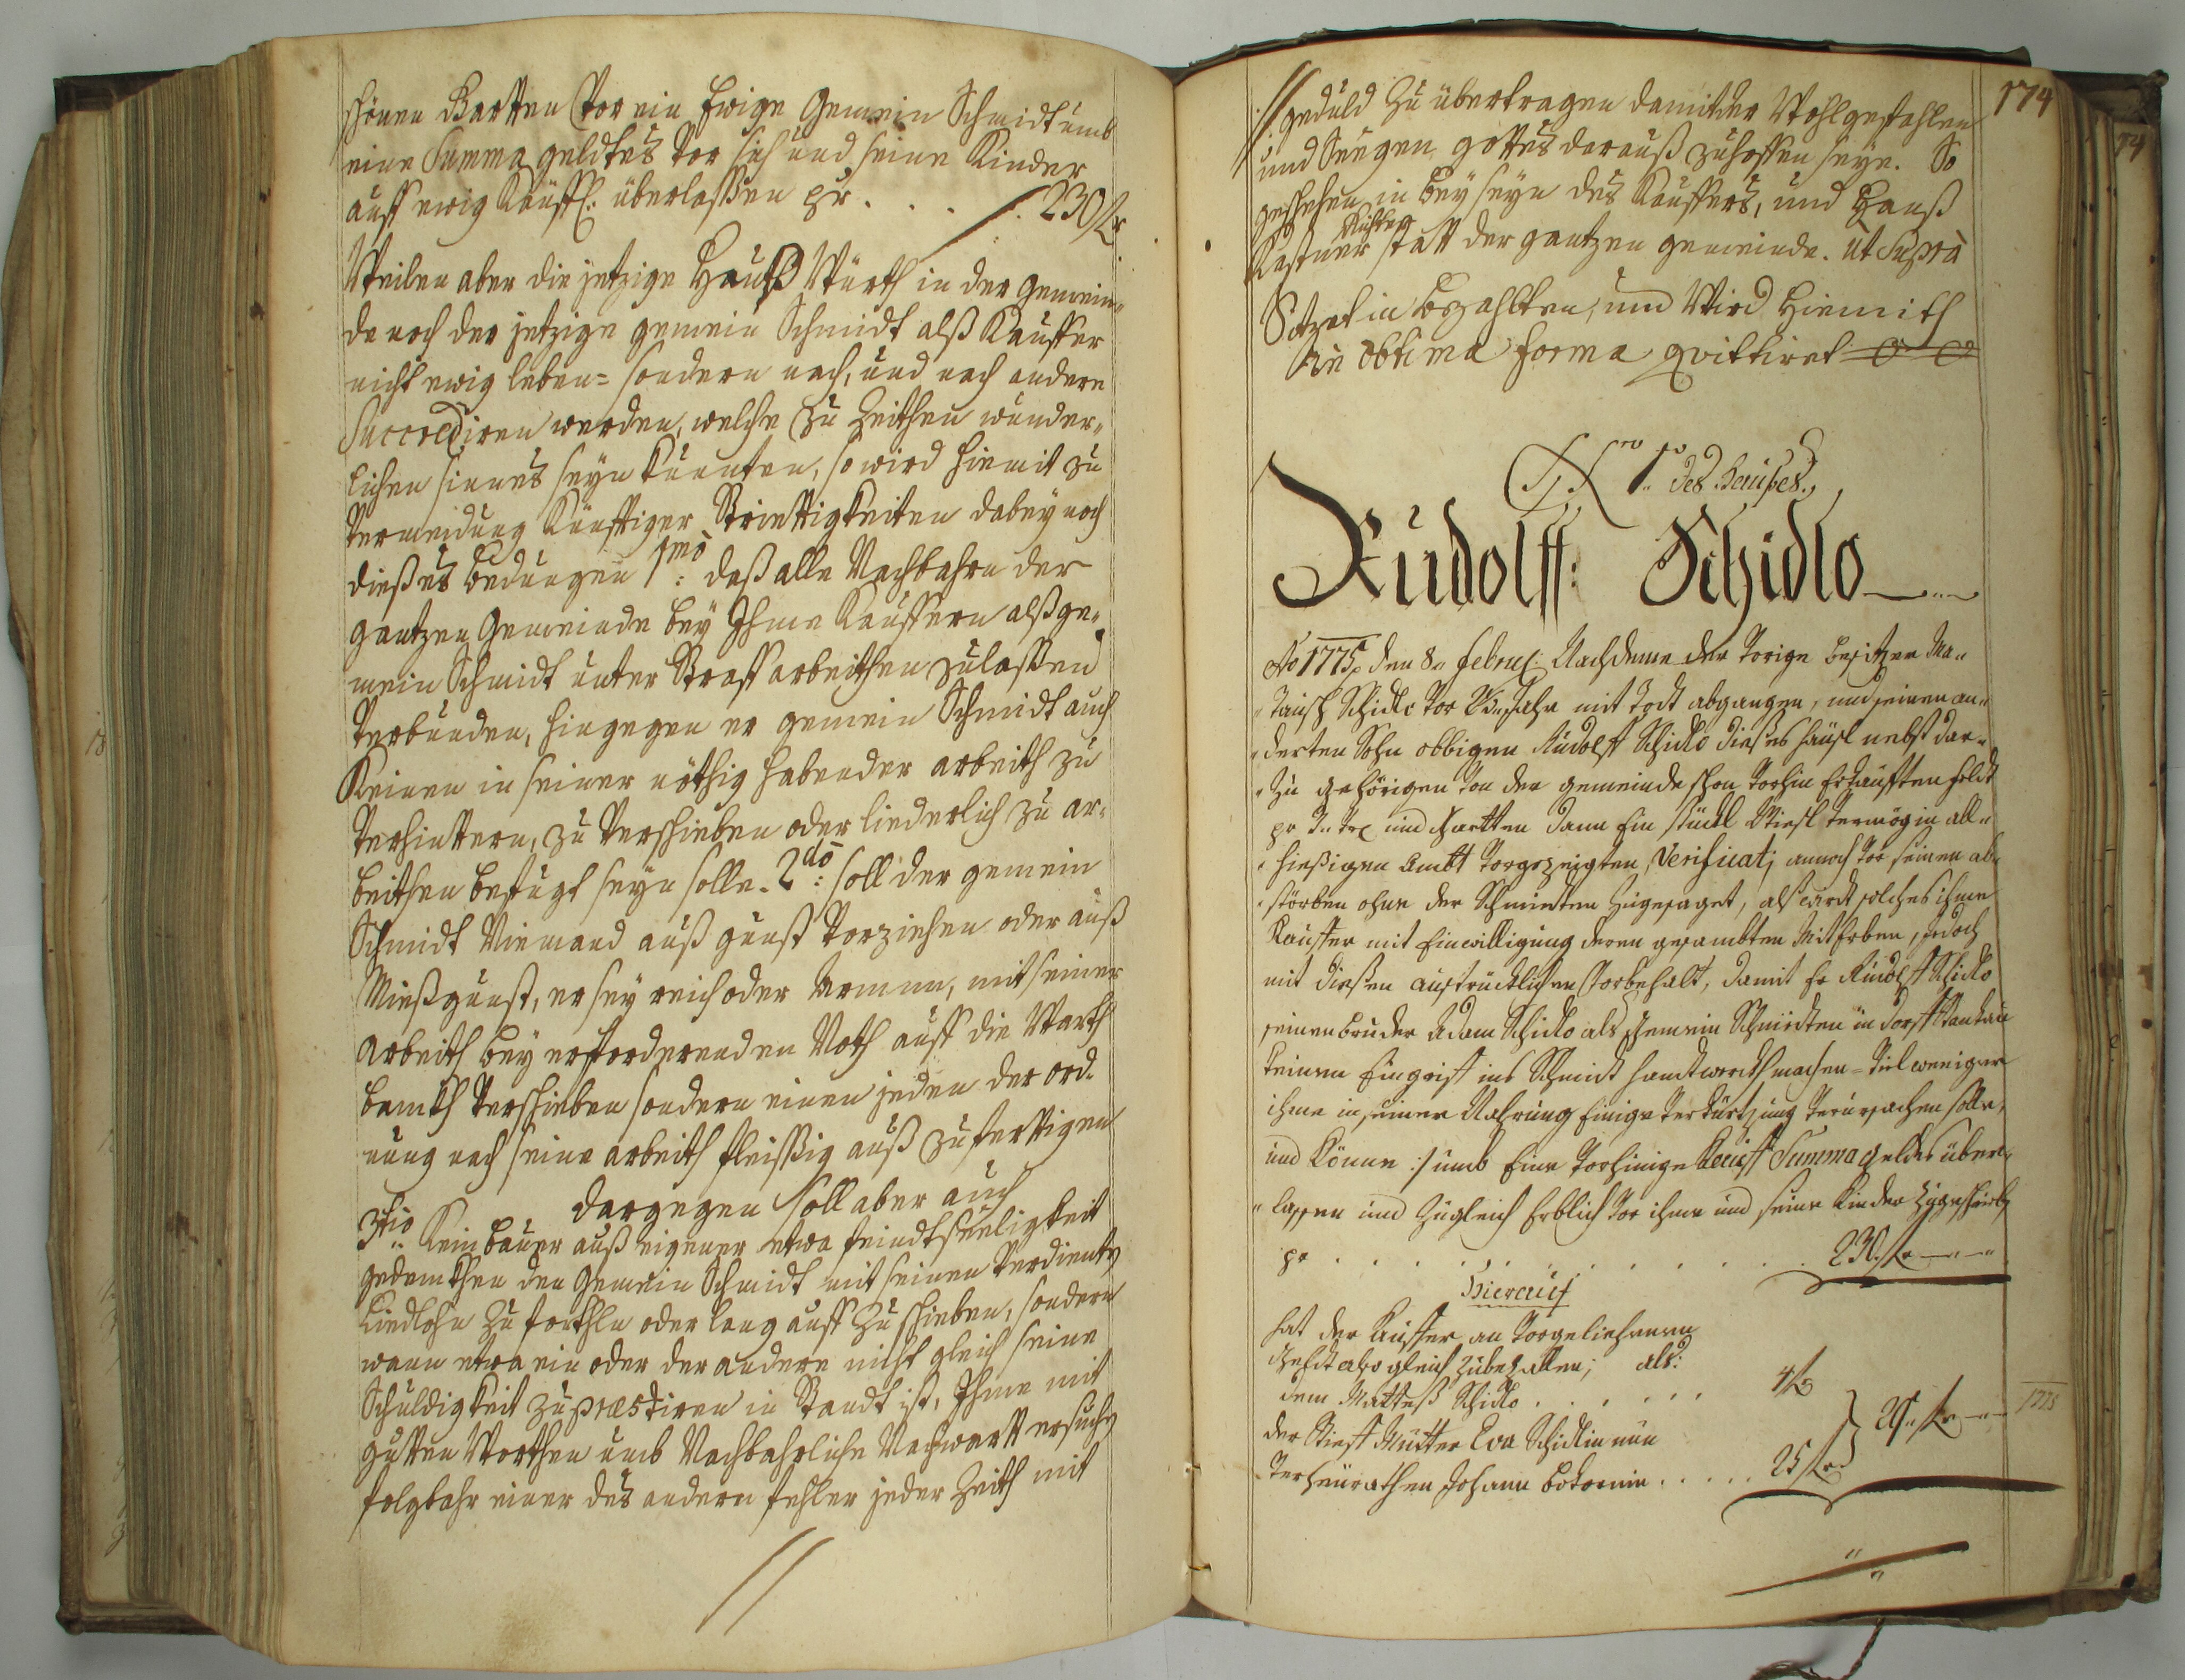 schönen Gartten vor ein Ewige Gemein Schmidt umb
eine Summa geldtes vor sich und seine Kinder
auff ewig Käuffl: überlassen pr . . . 230 ſ
Weilen aber die jetzige Hauß Würth in der Gemein„
de noch der jetzige gemein Schmidt alß Kauffer
nicht ewig leben= sondern nach, und nach andere
Succediren werden, welche zu Zeithen wunder„
lichen sinnes seyn kunnten, so wird hiemit zu
Vermeidung künfftiger Strittigkeiten dabey noch
dießes bedungen 1mò: daß alle Nachbahrn der
gantzen Gemeinde bey Ihme Kauffern alß ge„
mein Schmidt unter Straff arbeithen zulassen
verbunden, hingegen er gemein Schmidt auch
Keinen in seiner nöthig habender arbeith zu
verhintern, zu verschieben oder liederlich zu ar„
beithen befugt seyn solle. 2dò: soll der gemein
Schmidt Niemand auß gunst vorziehen oder auß
Mießgunst, er sey reich oder Armer, mit seiner
arbeith bey erforderenden Noth auff die Warth
banckh verschieben sondern einen jeden der ord„
nung nach seine arbeith fleissig auß zufertigen
dargegen soll aber auch
3tiò Kein bauer auß eigener etwa feindtseeligkeit
gedenckhen den Gemein Schmidt mit seinen verdienten
Liedlohn zu vorthln oder lang auff zu schieben, sondern
wann etwa ein oder der andere nicht gleich seine
Schuldigkeit zu præstiren in Standt ist, Ihme mit
gutten Worthen umb Nachbahrliche Nachwarth ersuchen
folgbahr einer des andern fehler jeder Zeith mit
//
174
// geduld zu übertragen damit der Wohlgefahlen
und Seegen gottes darauß zuhoffen seye. So
geschehen in beyseyn des Kauffers, und Hanß
Richter
Kastner statt der gantzen gemeinde. ut Suprà
Setzet in bezahlten, und Wird hiemith
in obtima forma quittiret
Nro 1 des Hauses.
Rudolff: Schidlo
Ao 1775 den 8„ februl: Nachdeme der vorige besitzer Ma„
„ Schidlo vor Jahr mit todt abgangen, und seinen an„
„derten Sohn obbigen Rudolff Schidlo dießes häusl nebst dar„
„zu gehörigen von der gemeinde schon vorhin erkaufften feldt
pr und Gartten dann Ein stückl Wiesl vermög in all„
„hießigen Ambt vorgezeigten Verificati annoch vor seinen ab„
„störben ohne der Schmidten zugesaget, als wirdt solches ihme
Kauffer mit Einwilligung deren gesambten Miterben, jedoch
mit dießen austrücklichen vorbehalt, damit Er Rudolff Schidlo
seinen bruder Adam Schidlo als Gemein Schmidten in dorff Stankau
keinen Eingriff ins Schmidt handtwerckh machen= vielweniger
ihme in seiner Nahrung Einige verkürtzung verursachen solle,
und könne :/ umb Eine vorhinige Kauff Summa geldes über„
„lassen und zugleich Erblich vor ihme und seine Kinder zugeschrieben
pr . . . . . . . . . . . 230. ſ
Hierauf
hat der Kauffer an vorgeliehenen
Geldt also gleich zubezallen; als:
dem Matteß Schidlo . . . . . . 4 ſ
der Stieff Mutter Eva Schidlin nun
verheurathen Johann . . . . . 25 ſ } 29„ ſ
1775